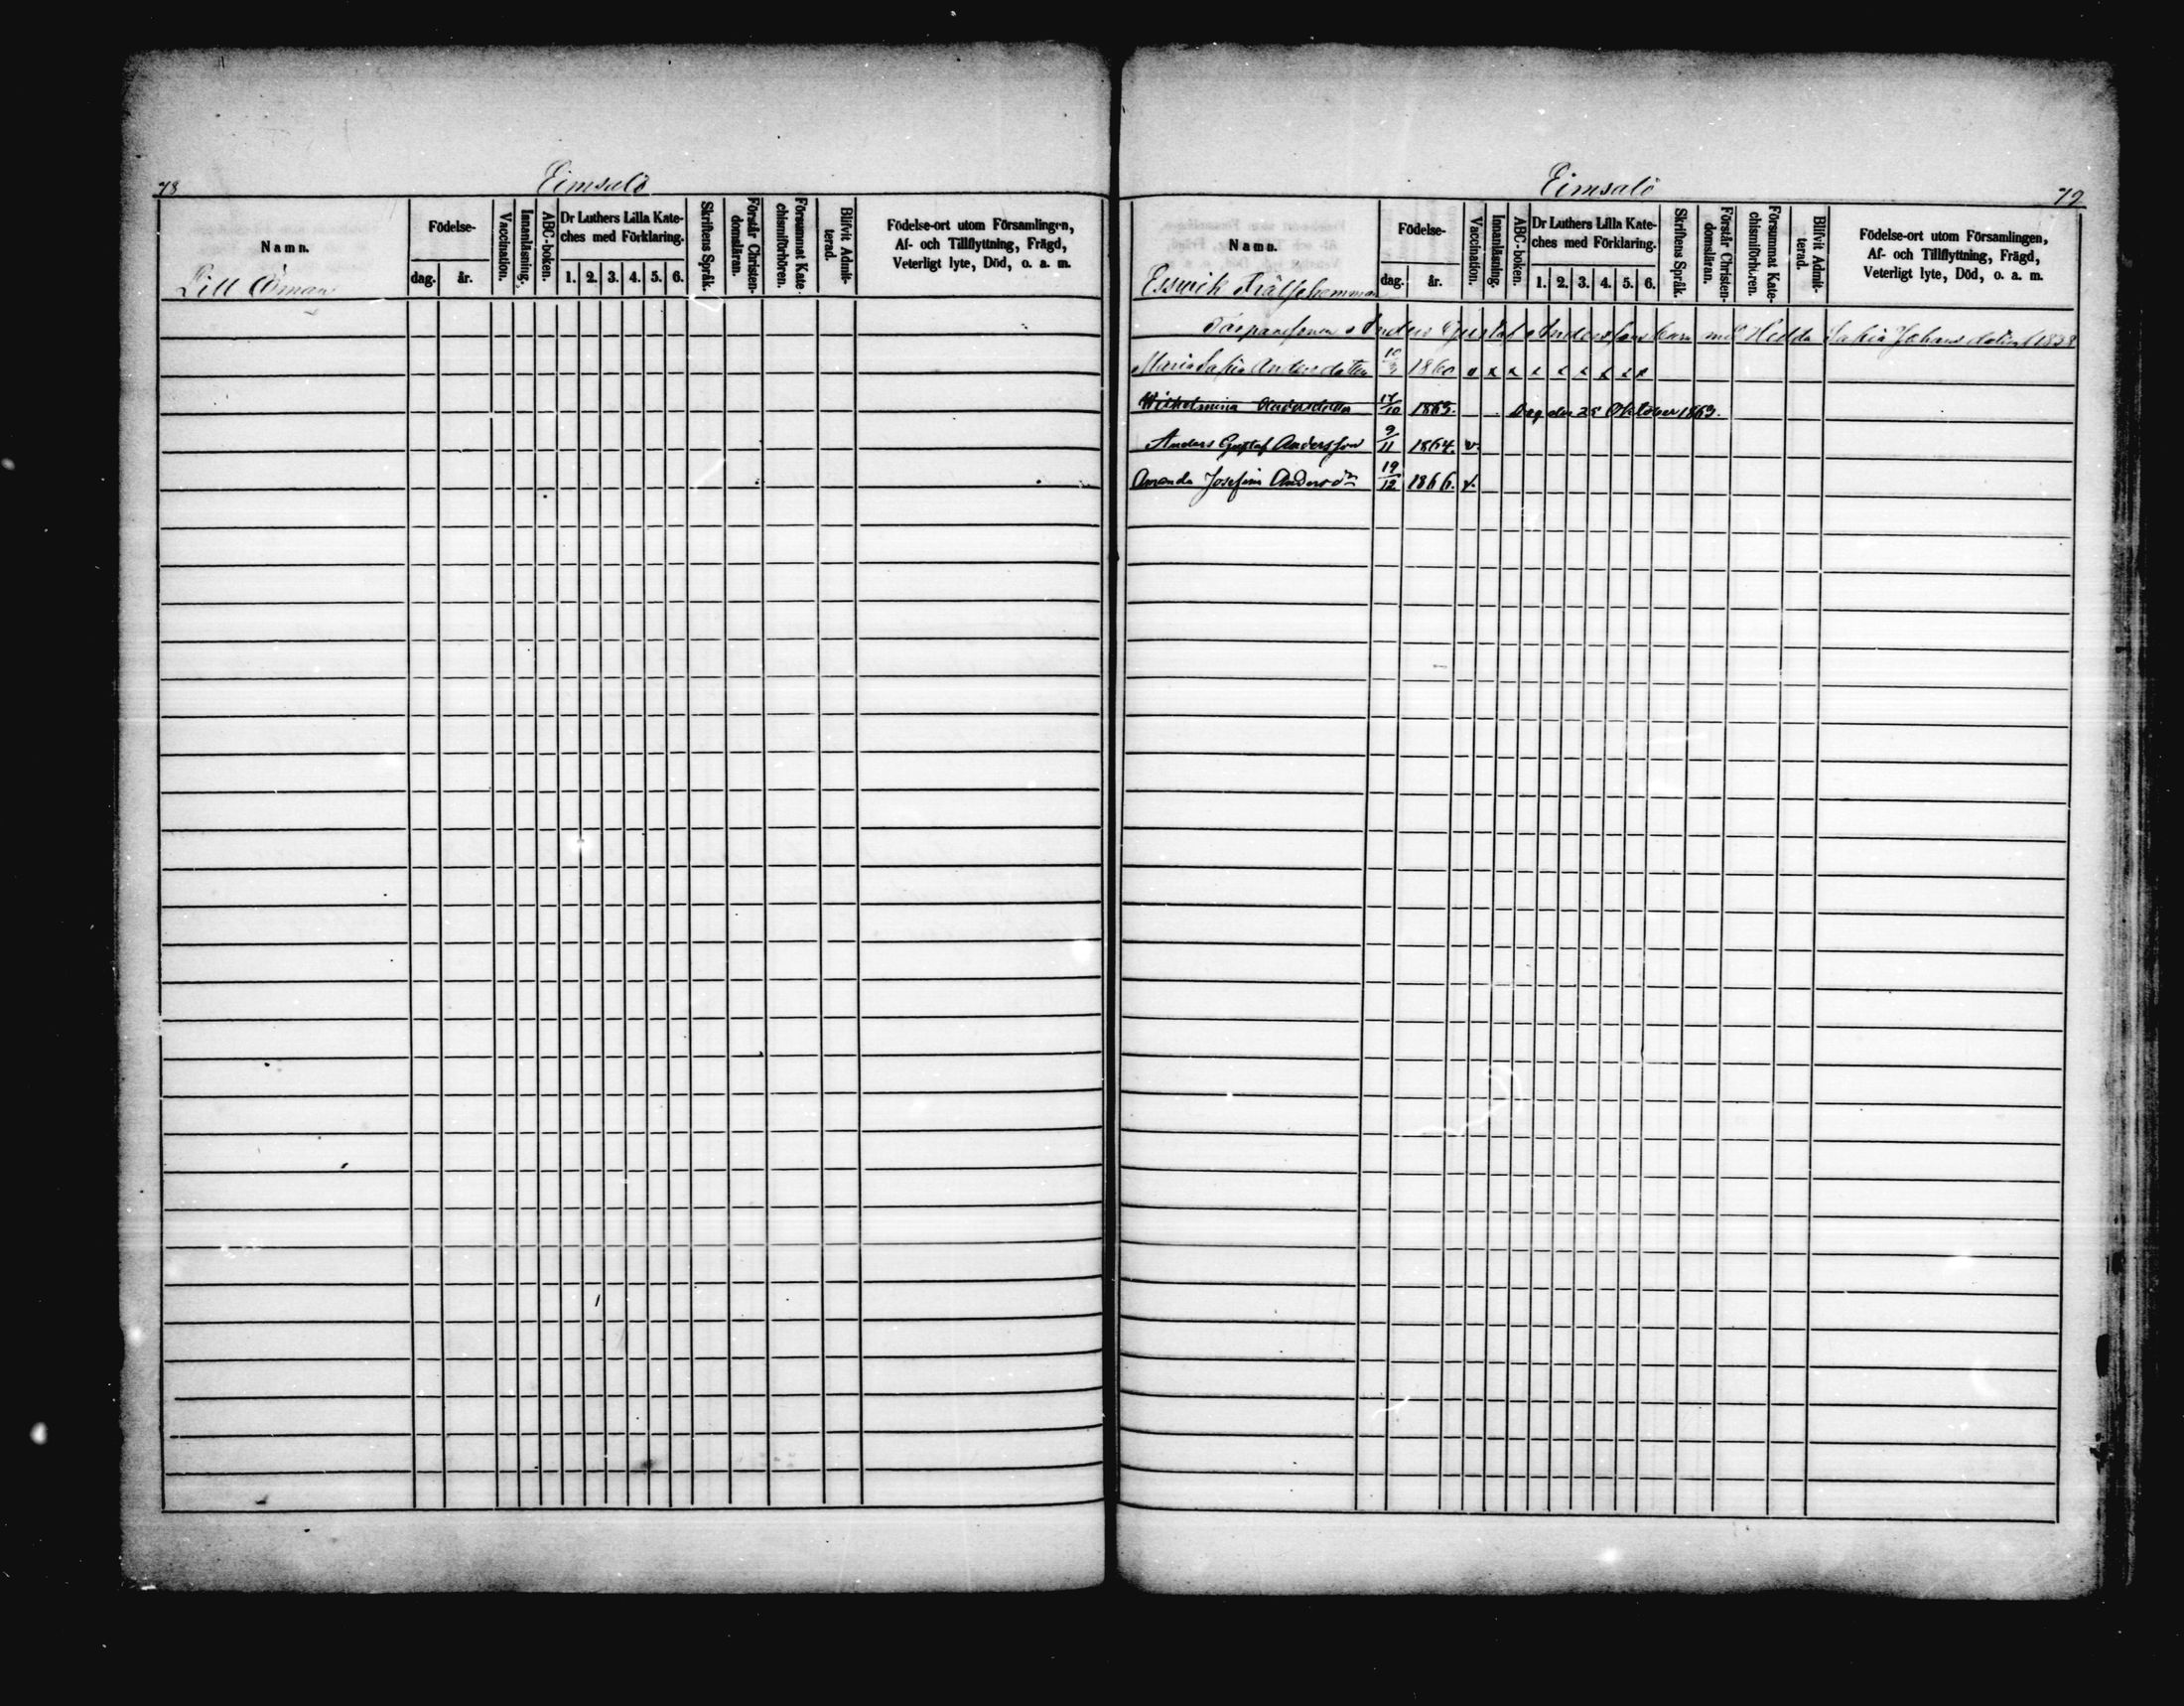 78
Eimsalö
Namn.
Födelse-
dag.
år.
Vaccination.
Innanläsning.
ABC-boken.
Dr Luthers Lilla Kate-
ches med Förklaring.
1. 2. 3. 4. 5. 6.
Skriftens Språk.
Förstår Christen-
domsläran.
Försummat Kate-
chismiförhören.
Blifvit Admit-
terad.
Födelse-ort utom Församlingen,
Af- och Tillflyttning, Frägd,
Veterligt lyte, Död, o. a. m.
Lill Öman
Eimsalö
79
Namn.
Födelse-
dag.
år.
Vaccination.
Innanläsning.
ABC-boken.
Dr Luthers Lilla Kate-
ches med Förklaring.
1. 2. 3. 4. 5. 6.
Skriftens Språk.
Förstår Christen-
domsläran.
Försummat Kate-
chismiförhören.
Blifvit Admit-
terad.
Födelse-ort utom Församlingen,
Af- och Tillflyttning, Frägd,
Veterligt lyte, Död, o. a. m.
Esswik Frälsehemman
Anders Gustaf Anderssons barn med Hedda Sofia Johansdotter 1838
Maria Sofia Andersdotter 1860 v x x x x x x x x
Wilhelmina Andersdotter 17/10 1863. Dog den 25 Oktober 1863.
Anders Gustaf Andersson 9/11 1864. v.
Amanda Josefina Andersdr 19/12 1866. v.